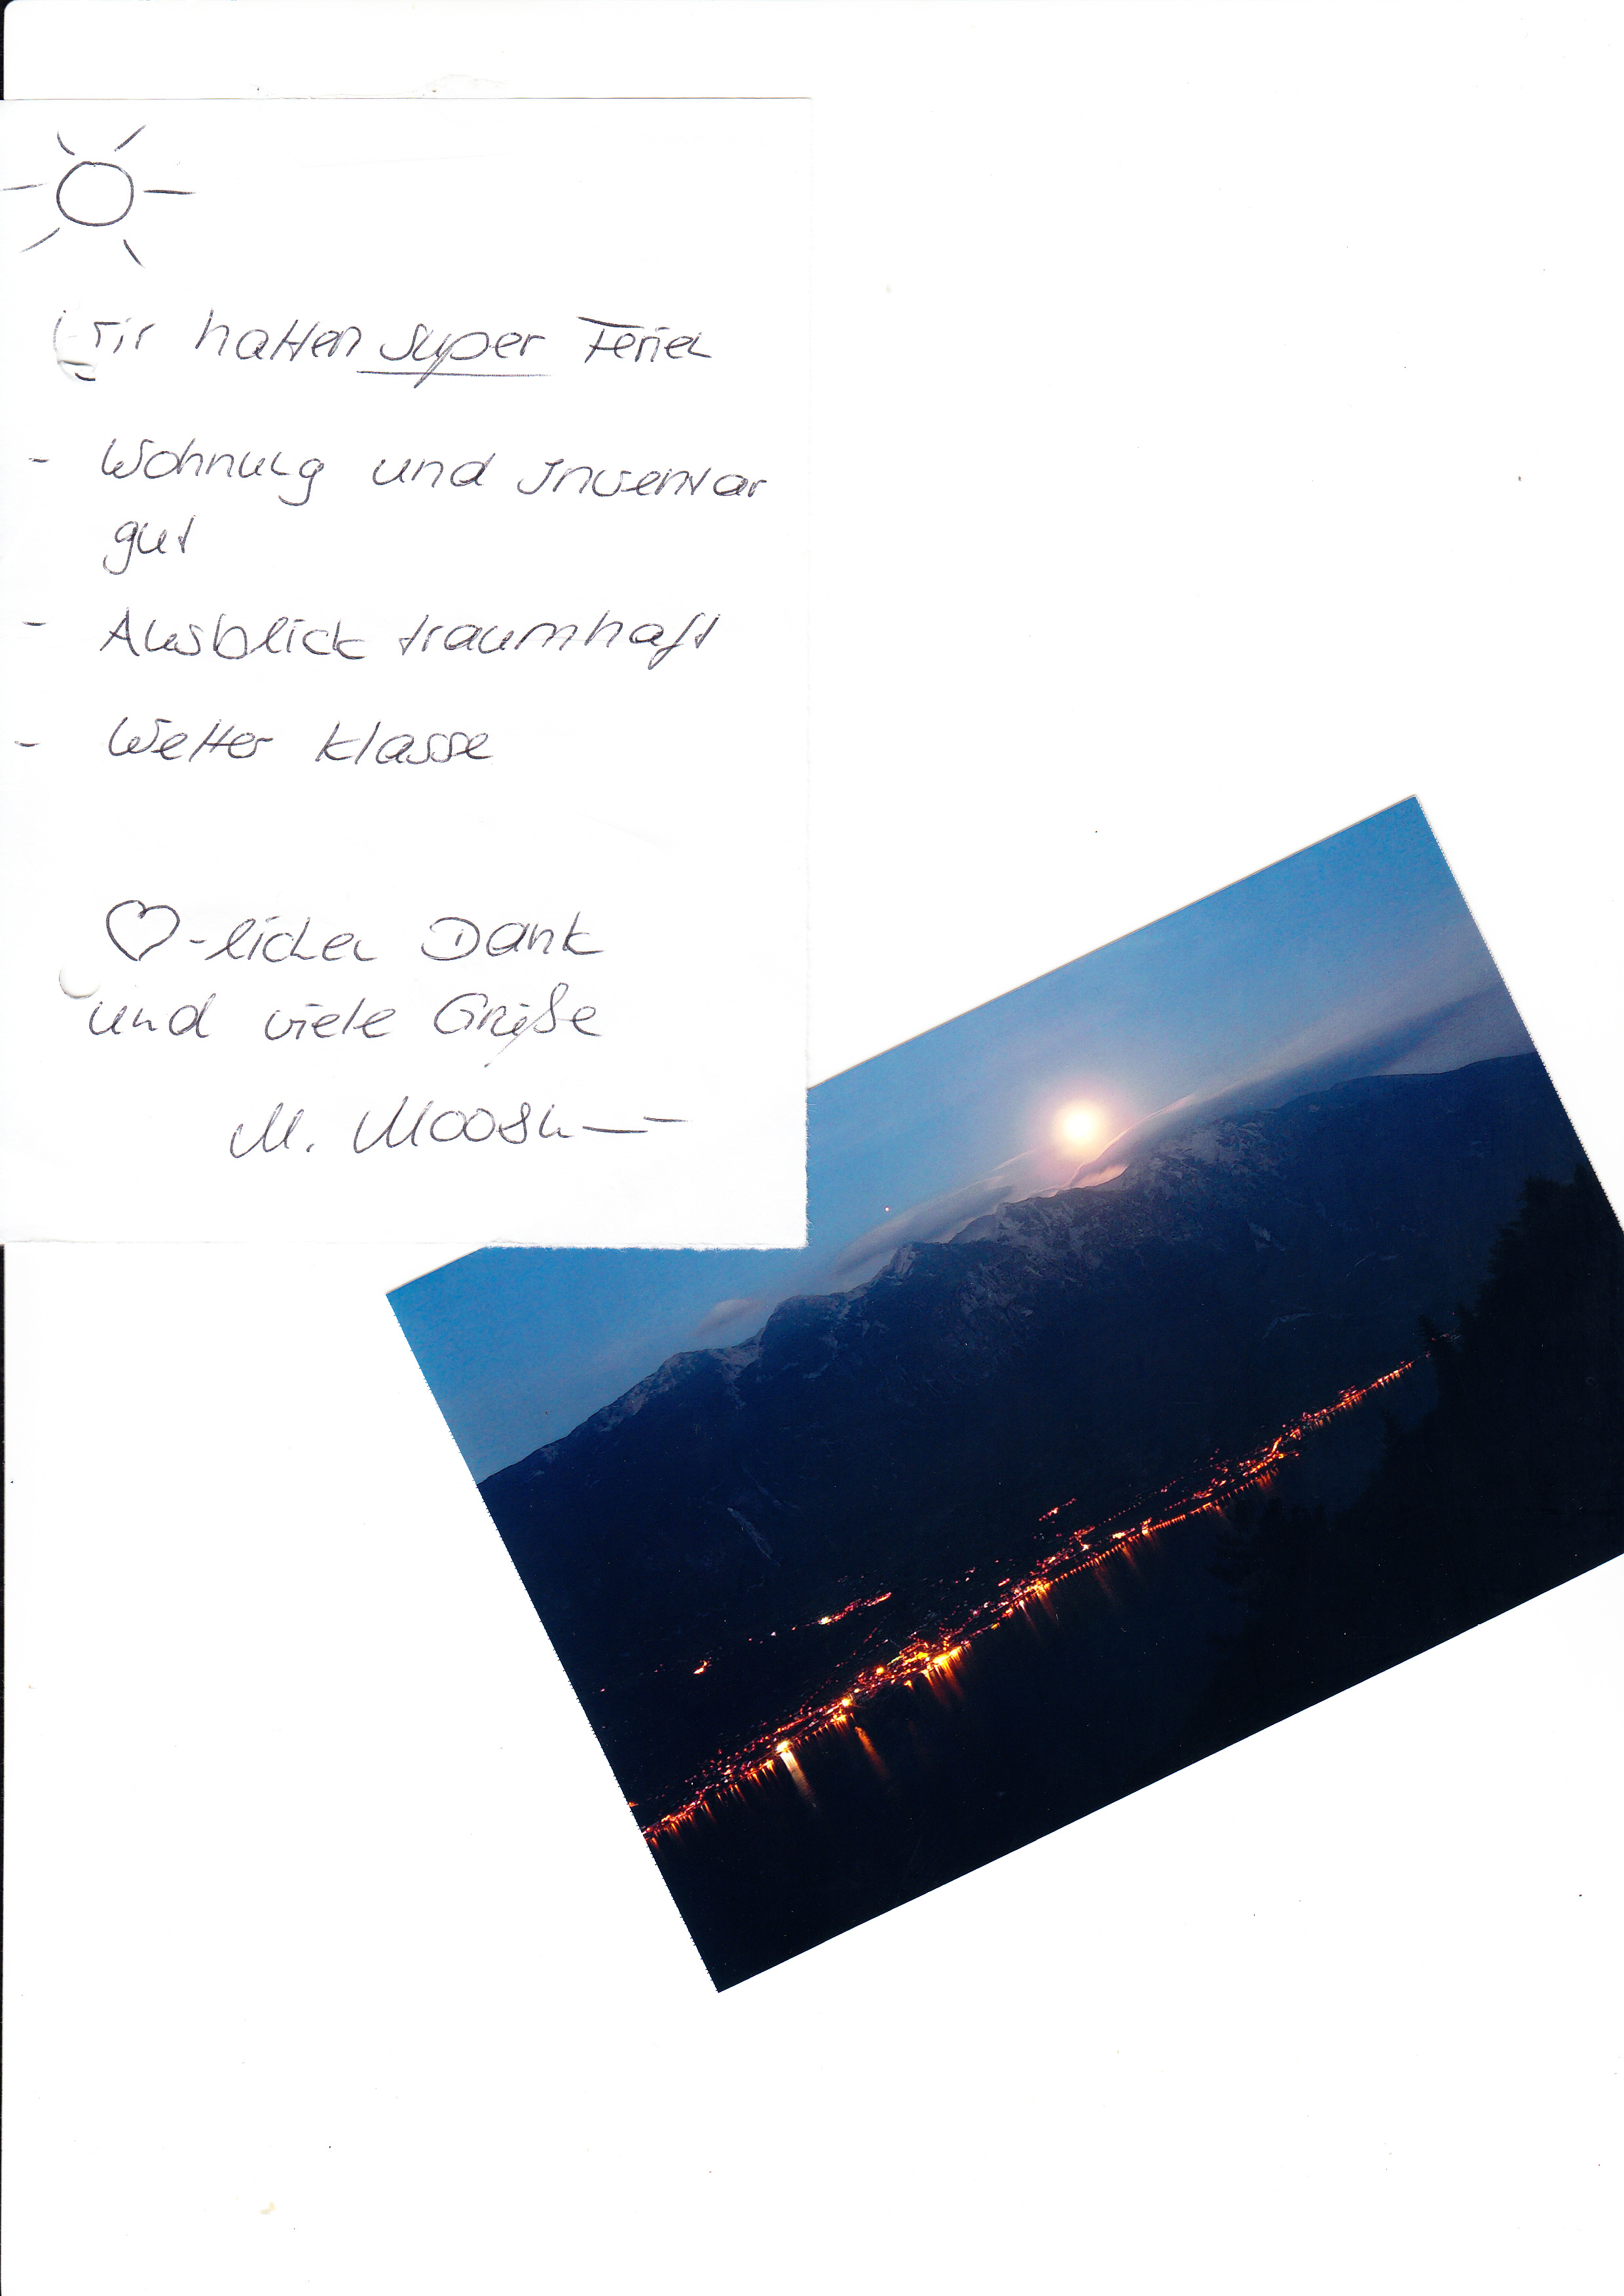 Wir hatten super Ferien
- Wohnung und Inventar
gut
- Ausblick traumhaft
- Wetter klasse
♡-lichen Dank
und viele Grüße
M.